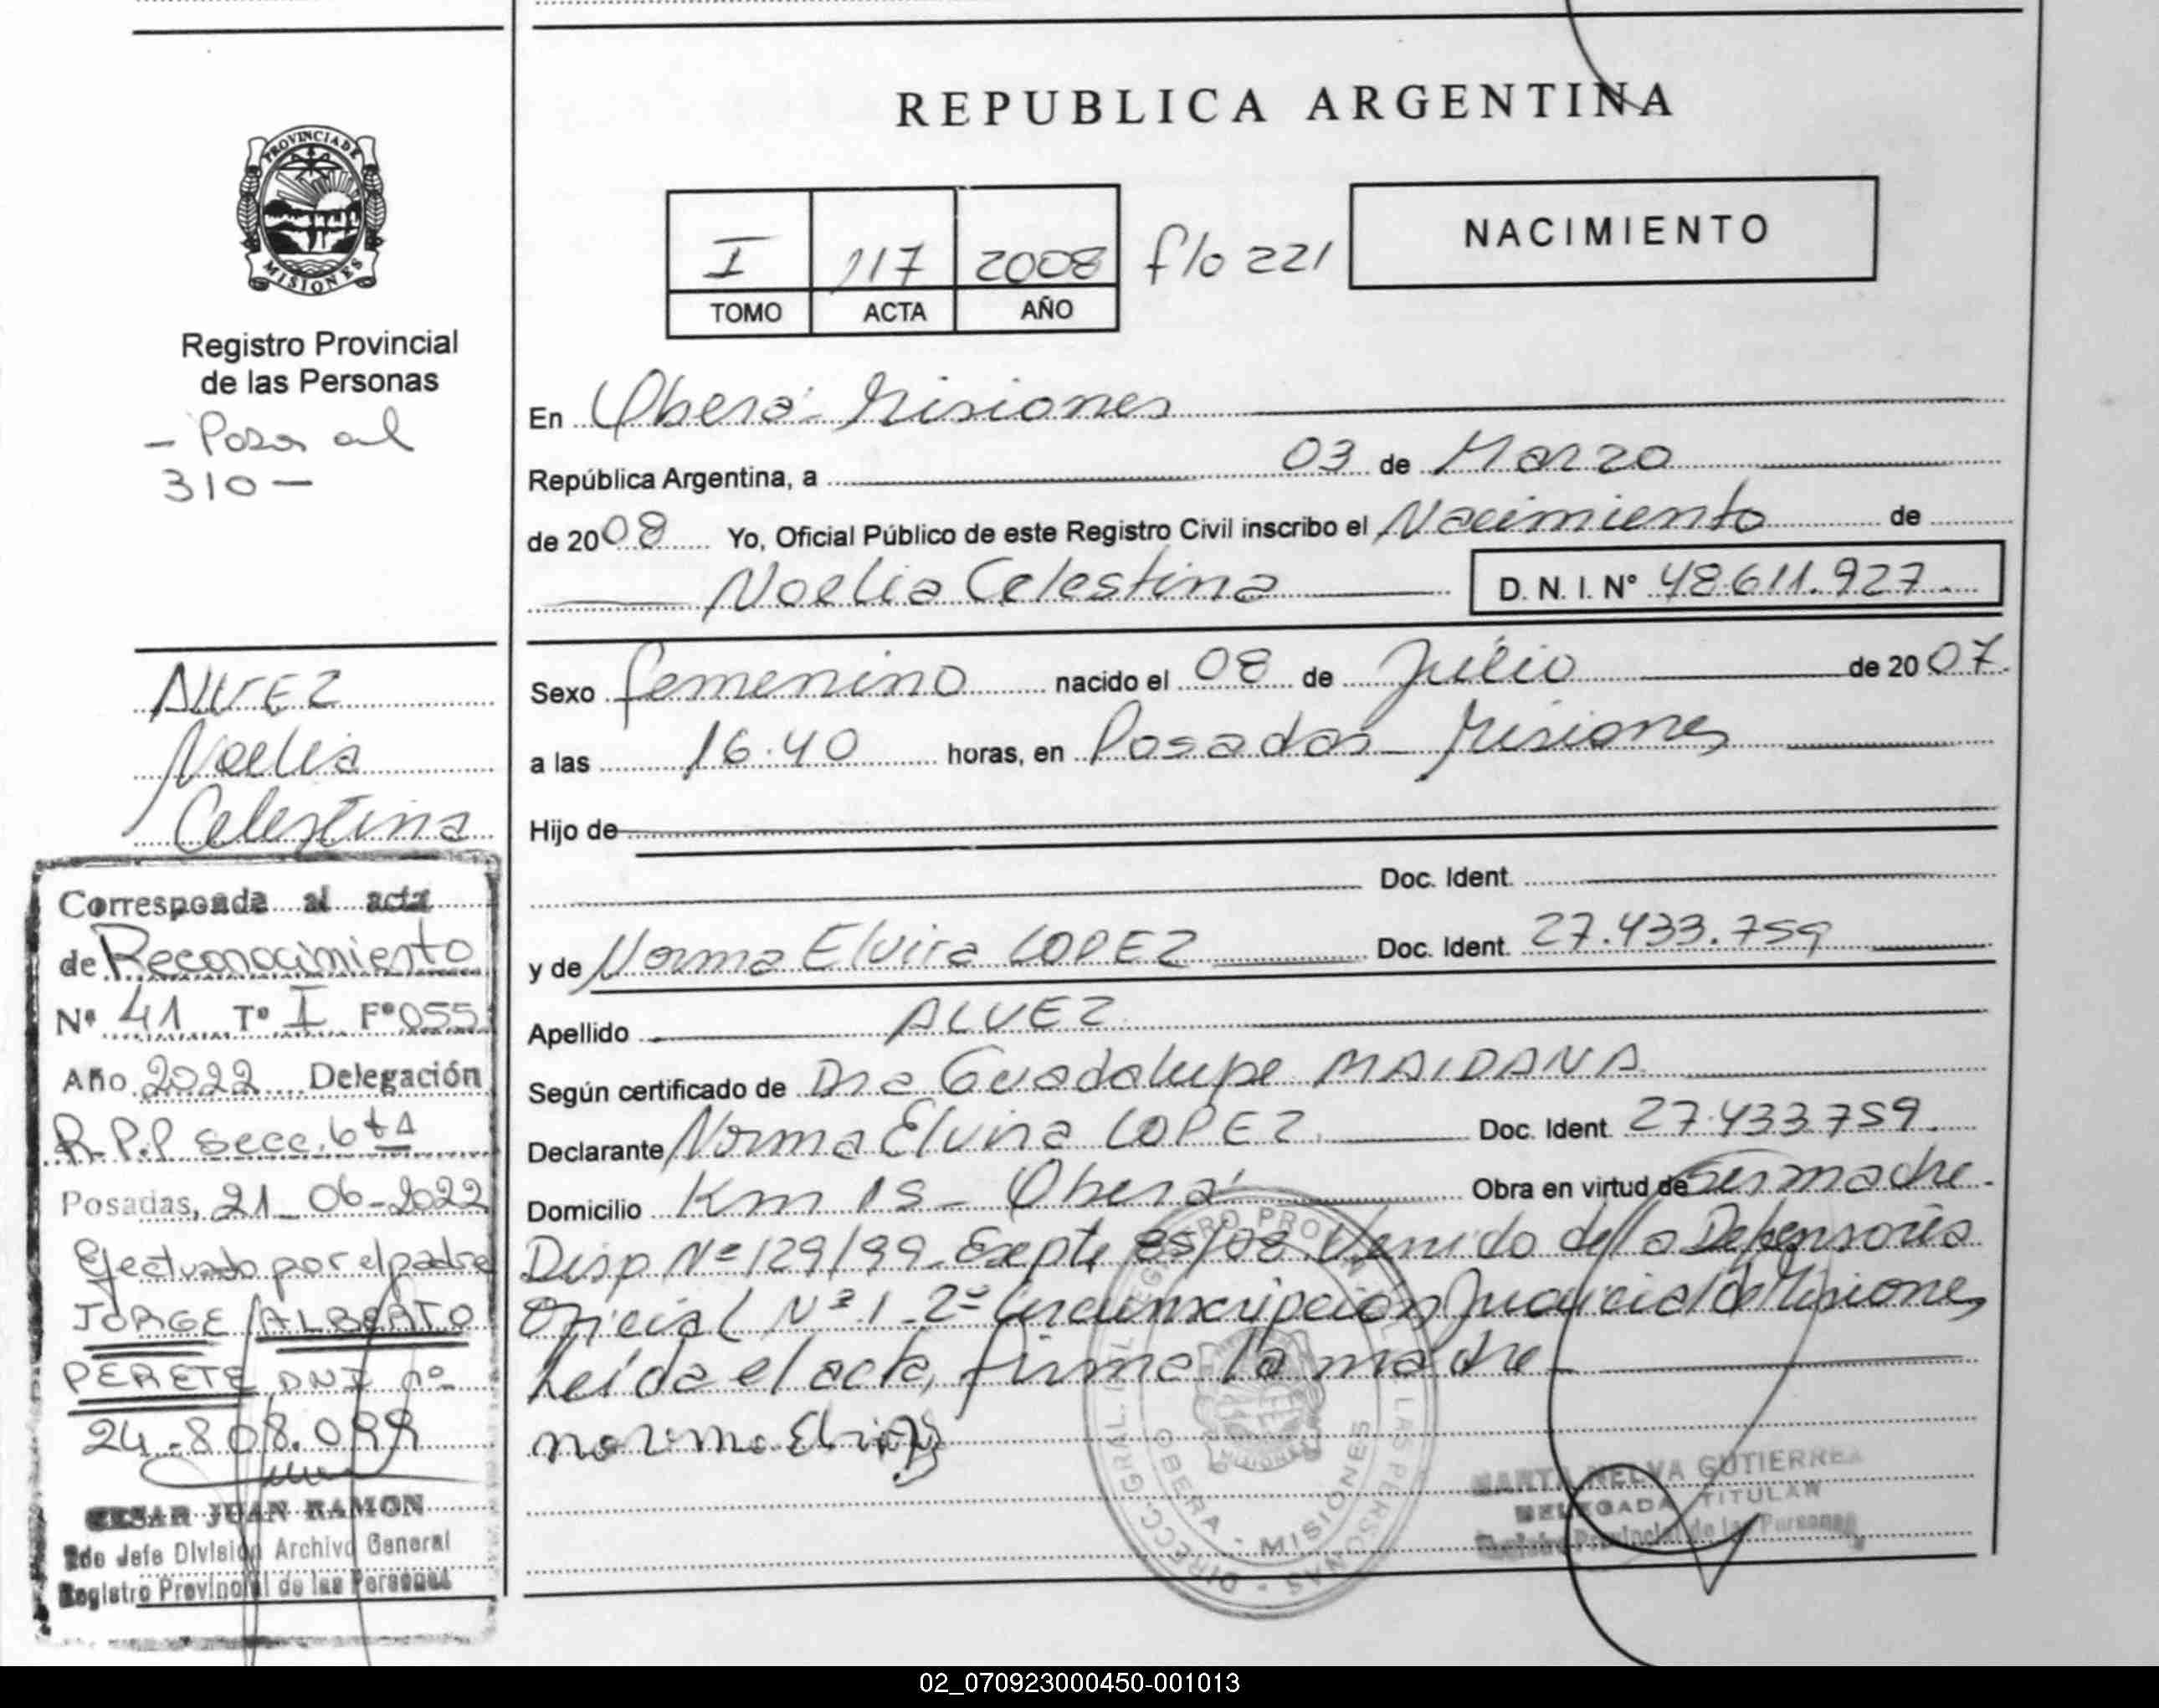 PROVINCIA DE
MISIONES
Registro Provincial
de las Personas
- Pasa al
310 -
ALVEZ
Noelia
Celestina
Corresponde al acta
de Reconocimiento
Nº 41 Tº I Fº 055
Año 2022 Delegación
R.P.P secc. 6ta
Posadas, 21-06-2022
Efectuado por el padre
JORGE ALBERTO
PERETE DNI nº
24.808.099
CESAR JUAN RAMON
2do Jefe División Archivo General
Registro Provincial de las Personas
REPUBLICA ARGENTINA
I 117 2008 f/o 221
TOMO ACTA AÑO
NACIMIENTO
En Oberá - Misiones
República Argentina, a 03 de Marzo
de 2008 Yo, Oficial Público de este Registro Civil inscribo el Nacimiento de
Noelia Celestina D. N. I. Nº 48.611.927.
Sexo femenino nacido el 08 de Julio de 2007.
a las 16.40 horas, en Posadas - Misiones
Hijo de
Doc. Ident.
y de Norma Elvira LOPEZ Doc. Ident. 27.433.759
Apellido ALVEZ
Según certificado de Dra Guadalupe MAIDANA
Declarante Norma Elvira LOPEZ Doc. Ident. 27.433.759.
Domicilio Km 18 - Oberá Obra en virtud de Ser madre.
Disp Nº 129/99 - Expte 85/08 Venido de la Defensoría
Oficial Nº 1 - 2º Circunscripción Judicial de Misiones
Leída el acta, firma la madre
OBERA - MISIONES
MARTA NELVA GUTIERREZ
DELEGADA TITULAR
Registro Provincial de las Personas
02_070923000450-001013